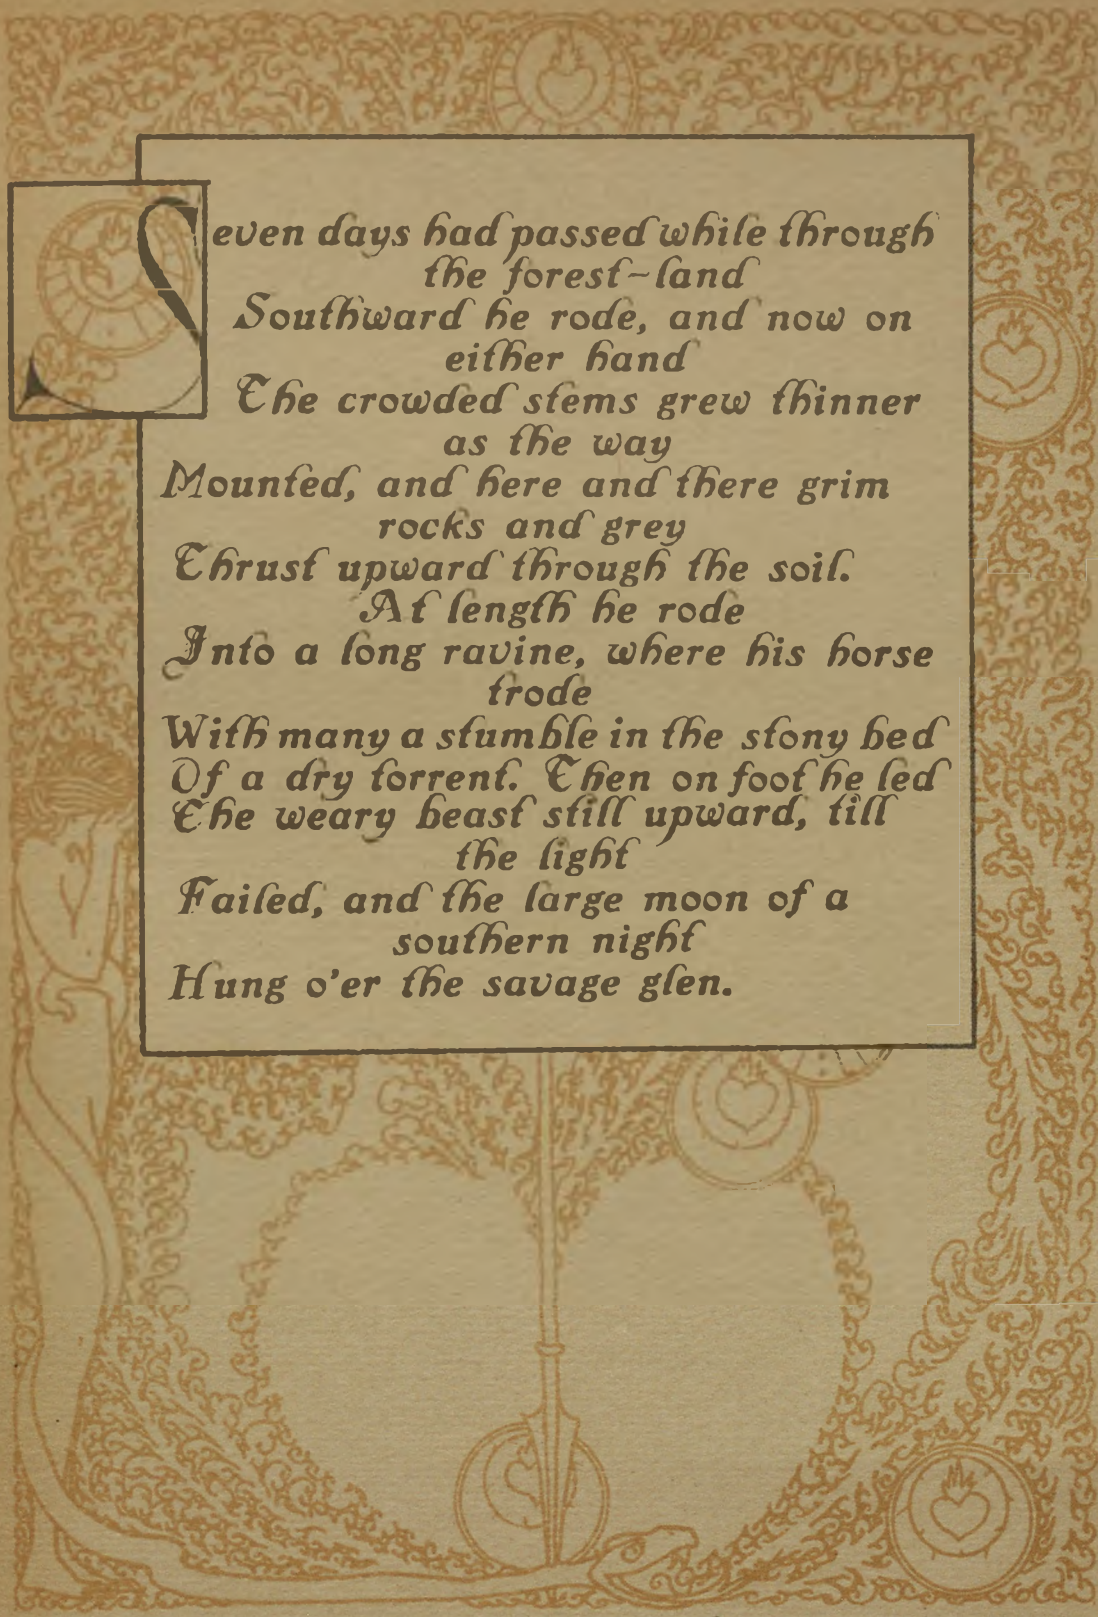 Seven days had passed while through
the forest-land
Southward he rode, and now on
either hand
The crowded stems grew thinner
as the way
Mounted, and here and there grim
rocks and grey
Thrust upward through the soil.
At length he rode
Into a long ravine, where his horse
trode
With many a stumble in the stony bed
Of a dry torrent. Then on foot he led
The weary beast still upward, till
the light
Failed, and the large moon of a
southern night
Hung o'er the savage glen.